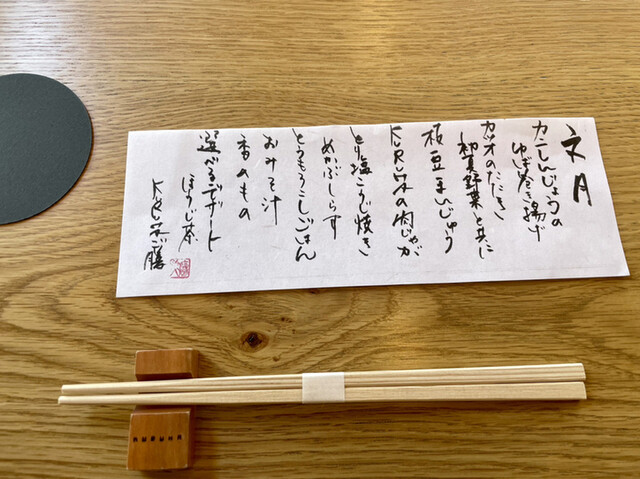 文月
カニしんじょうの
ゆば巻き揚げ
カツオのたたき
初夏野菜と共に
枝豆まんじゅう
の肉じゃが
とり塩こうじ焼き
めかぶしらす
とうもろこしごはん
おみそ汁
香のもの
選べるデザート
ほうじ茶
御膳